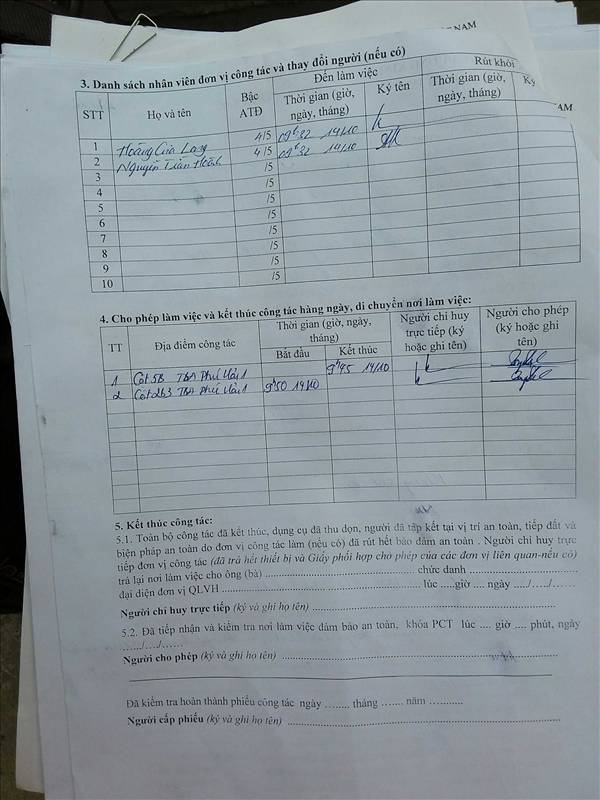 NAM
3. Danh sách nhân viên đơn vị công tác và thay đổi người (nếu có)
STT
Họ và tên
Bậc ATĐ
Đến làm việc
Rút khỏi
Thời gian (giờ, ngày, tháng)
Ký tên
Thời gian (giờ, ngày, tháng)
Ký
AM
1 Hoàng Gia Long 4/5 09h32 14/10
2 Nguyễn Tiến 4/5 09h32 14/10
3 /5
4 /5
5 /5
6 /5
7 /5
8 /5
9 /5
10 /5
4. Cho phép làm việc và kết thúc công tác hàng ngày, di chuyển nơi làm việc:
TT
Địa điểm công tác
Thời gian (giờ, ngày, tháng)
Bắt đầu
Kết thúc
Người chỉ huy trực tiếp (ký hoặc ghi tên)
Người cho phép (ký hoặc ghi tên)
1 Cột 5B TBA Phú Hải 1 9h45 14/10
2 Cột 2b3 TBA Phú Hải 1 9h50 14/10
5. Kết thúc công tác:
5.1. Toàn bộ công tác đã kết thúc, dụng cụ đã thu dọn, người đã tập kết tại vị trí an toàn, tiếp đất và
biện pháp an toàn do đơn vị công tác làm (nếu có) đã rút hết bảo đảm an toàn . Người chỉ huy trực
tiếp đơn vị công tác (đã trả hết thiết bị và Giấy phối hợp cho phép của các đơn vị liên quan-nếu có)
trả lại nơi làm việc cho ông (bà) ........ chức danh ........
đại diện đơn vị QLVH ........ lúc .....giờ .... ngày ...../...../......
Người chỉ huy trực tiếp (ký và ghi họ tên) ........
5.2. Đã tiếp nhận và kiểm tra nơi làm việc đảm bảo an toàn, khóa PCT lúc .... giờ .... phút, ngày
....../...../......
Người cho phép (ký và ghi họ tên) ........
Đã kiểm tra hoàn thành phiếu công tác ngày ........ tháng ....... năm ...........
Người cấp phiếu (ký và ghi họ tên) ........